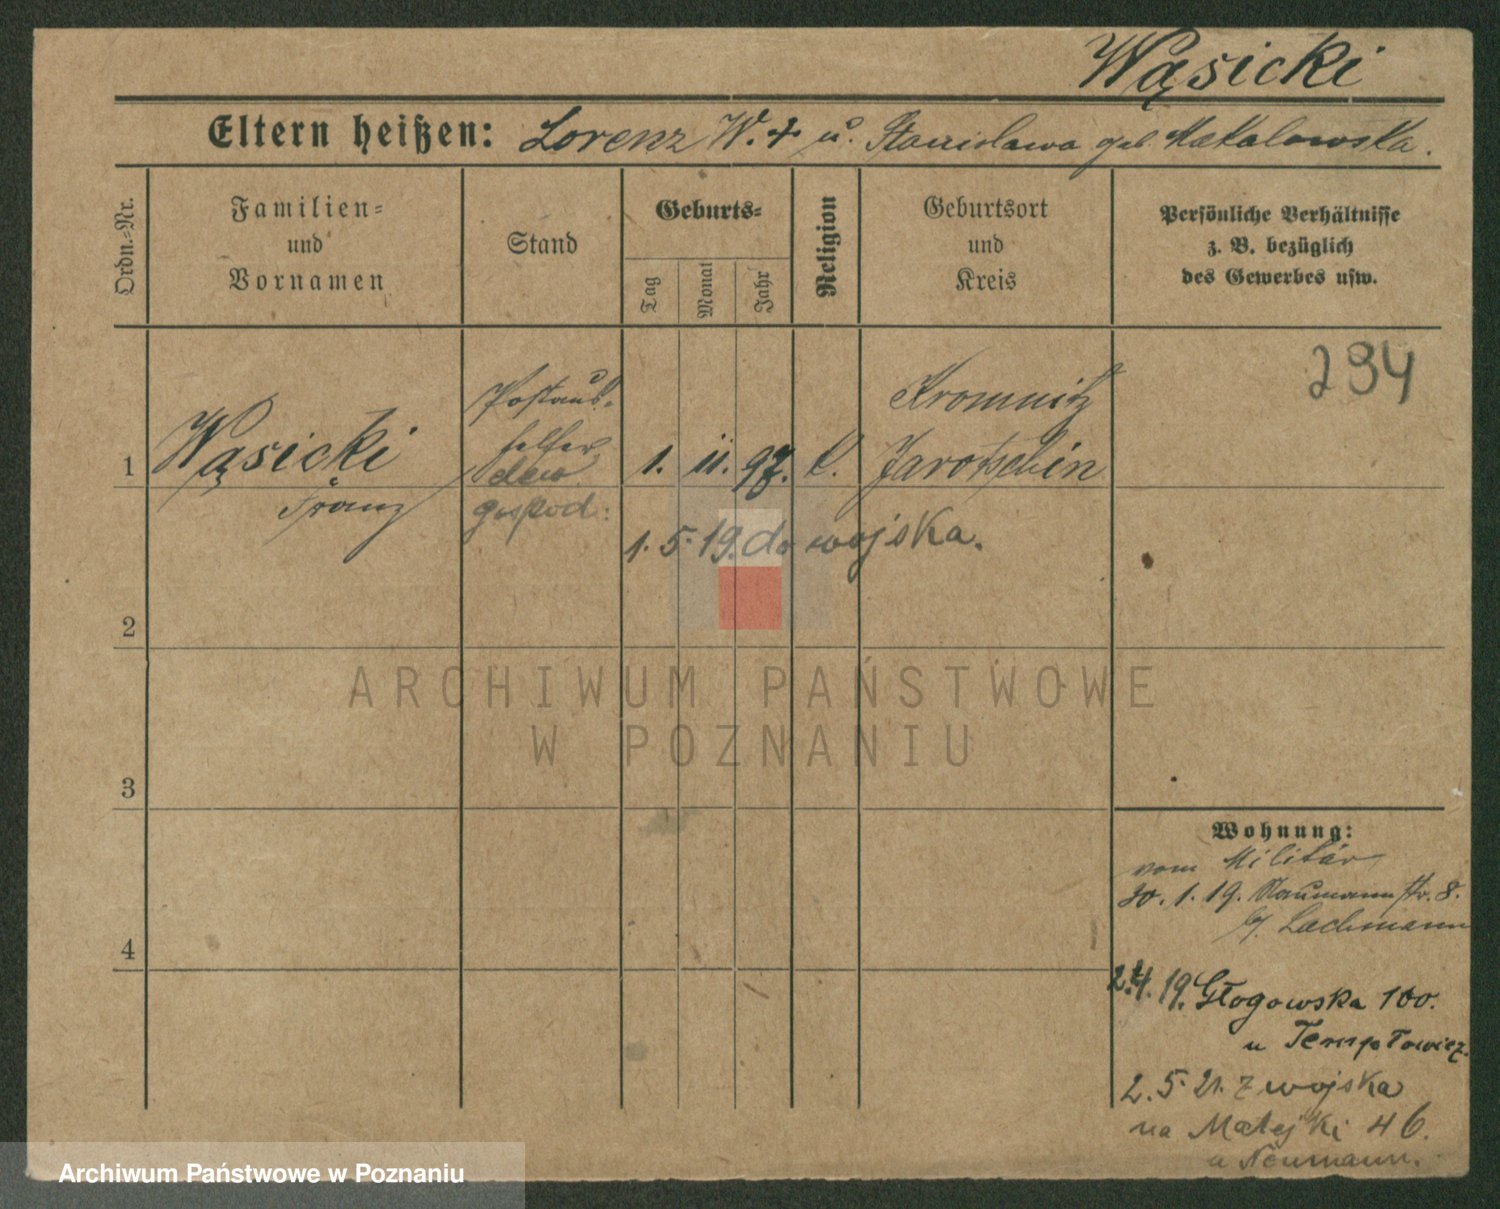 Wąsicki
Eltern heißen: Lorenz W. + u. Stanislawa geb. Makalowska.
Ordn.-Nr.
Familien-
und
Vornamen
Stand
Geburts-
Tag
Monat
Jahr
Religion
Geburtsort
und
Kreis
Persönliche Verhältnisse
z. B. bezüglich
des Gewerbes usw.
294
1
Wąsicki
Franz
Postaus-
helfer
gospod.
1. 11. 97. k.
Kromnitz
Jarotschin
1. 5. 19. do wojska.
2
3
4
Wohnung:
vom Militär
30. 1. 19. Naumannstr. 8.
bj. Lachmann
2.4.19. Głogowska 100.
u Templowicz.
2. 5. 21. z wojska
na Matejki 46.
u Neumann.
ARCHIWUM PAŃSTWOWE
W POZNANIU
Archiwum Państwowe w Poznaniu